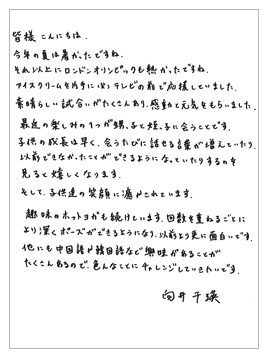 皆様 こんにちは。
今年の夏は暑かったですね。
それ以上にロンドンオリンピックも熱かったですね。
アイスクリームを片手に必ずテレビの前で応援していました。
素晴らしい試合いがたくさんあり、感動と元気をもらいました。
最近の楽しみの1つが甥っ子と姪っ子に会うことです。
子供の成長は早く、会うたびに話せる言葉が増えていたり
以前できなかったことができるようになっていたりするのを
見ると嬉しくなります。
そして、子供達の笑顔に癒やされています。
趣味のホットヨガも続けています。回数を重ねるごとに
より深くポーズができるようになり、以前より更に面白いです。
他にも中国語や韓国語など興味があることが
たくさんあるので、色んなことにチャレンジしていきたいです。
向井千瑛